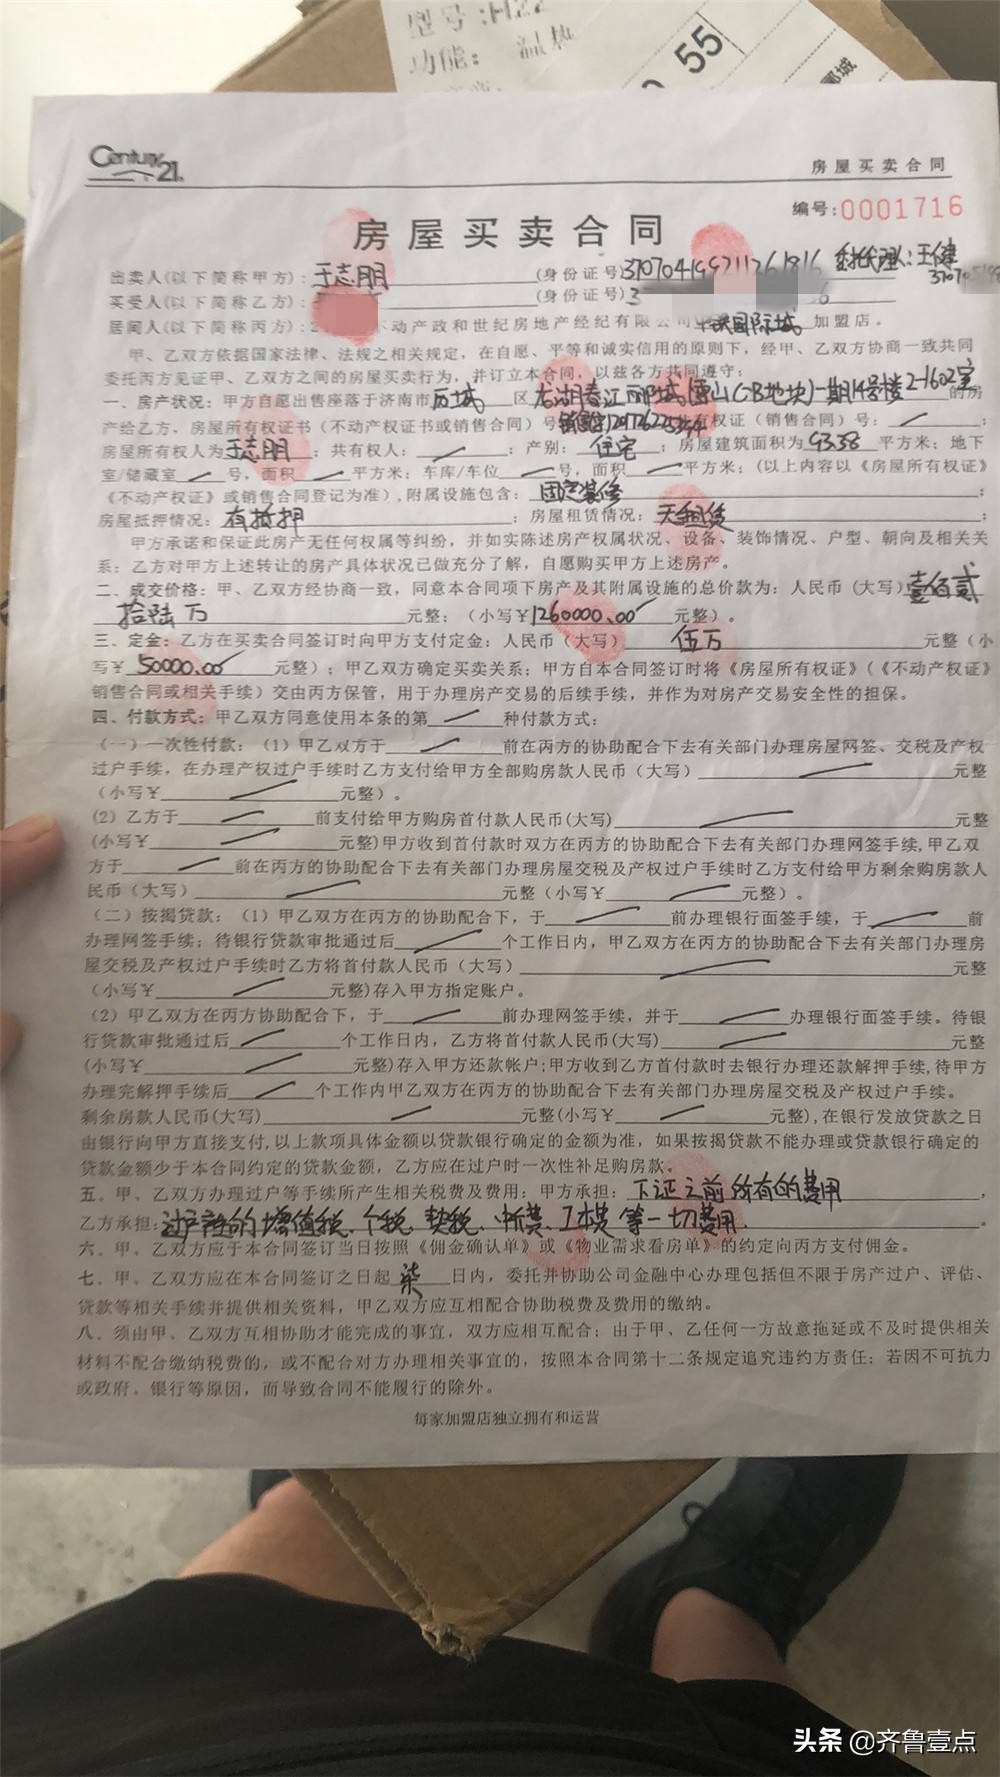 型号:H22
功能: 温热
55
郦城
Century 21
房屋买卖合同
编号:0001716
房屋买卖合同
出卖人(以下简称甲方):于志朋 (身份证号) 委托代理人:王健
买受人(以下简称乙方): (身份证号)3
居间人(以下简称丙方): 不动产政和世纪房地产经纪有限公司 国际城 加盟店。
甲、乙双方依据国家法律、法规之相关规定,在自愿、平等和诚实信用的原则下,经甲、乙双方协商一致共同
委托丙方见证甲、乙双方之间的房屋买卖行为,并订立本合同,以兹各方共同遵守:
一、房产状况:甲方自愿出售座落于济南市 历城 区 龙湖春江郦城(雪山C-B地块)一期14号楼2-1602室 的房
产给乙方,房屋所有权证书(不动产权证书或销售合同)号 共有权证(销售合同)号:
房屋所有权人为 于志朋 ;共有权人: ;产别: 住宅 ;房屋建筑面积为 93.38 平方米;地下
室/储藏室 号,面积 平方米;车库/车位 号,面积 平方米;(以上内容以《房屋所有权证》
《不动产权证》或销售合同登记为准),附属设施包含: 固定装修 ;
房屋抵押情况: 有抵押 ;房屋租赁情况: 无租赁 ;
甲方承诺和保证此房产无任何权属等纠纷,并如实陈述房产权属状况、设备、装饰情况、户型、朝向及相关关
系;乙方对甲方上述转让的房产具体状况己做充分了解,自愿购买甲方上述房产。
二、成交价格:甲、乙双方经协商一致,同意本合同项下房产及其附属设施的总价款为:人民币(大写) 壹佰贰
拾陆万 元整;(小写¥1260000.00 元整)。
三、定金:乙方在买卖合同签订时向甲方支付定金:人民币(大写) 伍万 元整(小
写¥ 50000.00 元整);甲乙双方确定买卖关系;甲方自本合同签订时将《房屋所有权证》(《不动产权证》
销售合同或相关手续)交由丙方保管,用于办理房产交易的后续手续,并作为对房产交易安全性的担保。
四、付款方式:甲乙双方同意使用本条的第 种付款方式:
(一)一次性付款:(1)甲乙双方于 前在丙方的协助配合下去有关部门办理房屋网签、交税及产权
过户手续,在办理产权过户手续时乙方支付给甲方全部购房款人民币(大写) 元整
(小写¥ 元整)。
(2)乙方于 前支付给甲方购房首付款人民币(大写) 元整
(小写¥ 元整)甲方收到首付款时双方在丙方的协助配合下去有关部门办理网签手续,甲乙双
方于 前在丙方的协助配合下去有关部门办理房屋交税及产权过户手续时乙方支付给甲方剩余购房款人
民币(大写) 元整(小写¥ 元整)。
(二)按揭贷款:(1)甲乙双方在丙方的协助配合下,于 前办理银行面签手续,于 前
办理网签手续;待银行贷款审批通过后 个工作日内,甲乙双方在丙方的协助配合下去有关部门办理房
屋交税及产权过户手续时乙方将首付款人民币(大写) 元整
(小写¥ 元整)存入甲方指定账户。
(2)甲乙双方在丙方协助配合下,于 前办理网签手续,并于 办理银行面签手续。待银
行贷款审批通过后 个工作日内,乙方将首付款人民币(大写) 元整
(小写¥ 元整)存入甲方还款帐户;甲方收到乙方首付款时去银行办理还款解押手续,待甲方
办理完解押手续后 个工作内甲乙双方在丙方的协助配合下去有关部门办理房屋交税及产权过户手续。
剩余房款人民币(大写) 元整(小写¥ 元整),在银行发放贷款之日
由银行向甲方直接支付,以上款项具体金额以贷款银行确定的金额为准,如果按揭贷款不能办理或贷款银行确定的
贷款金额少于本合同约定的贷款金额,乙方应在过户时一次性补足购房款。
五、甲、乙双方办理过户等手续所产生相关税费及费用:甲方承担: 下证之前所有的费用 ,
乙方承担: 过户产生的增值税、个税、契税、中介费、工本费等一切费用 。
六、甲、乙双方应于本合同签订当日按照《佣金确认单》或《物业需求看房单》的约定向丙方支付佣金。
七、甲、乙双方应在本合同签订之日起 柒 日内,委托并协助公司金融中心办理包括但不限于房产过户、评估、
贷款等相关手续并提供相关资料,甲乙双方应互相配合协助税费及费用的缴纳。
八、须由甲、乙双方互相协助才能完成的事宜,双方应相互配合;由于甲、乙任何一方故意拖延或不及时提供相关
材料不配合缴纳税费的,或不配合对方办理相关事宜的,按照本合同第十二条规定追究违约方责任;若因不可抗力
或政府、银行等原因,而导致合同不能履行的除外。
每家加盟店独立拥有和运营
头条 @齐鲁壹点